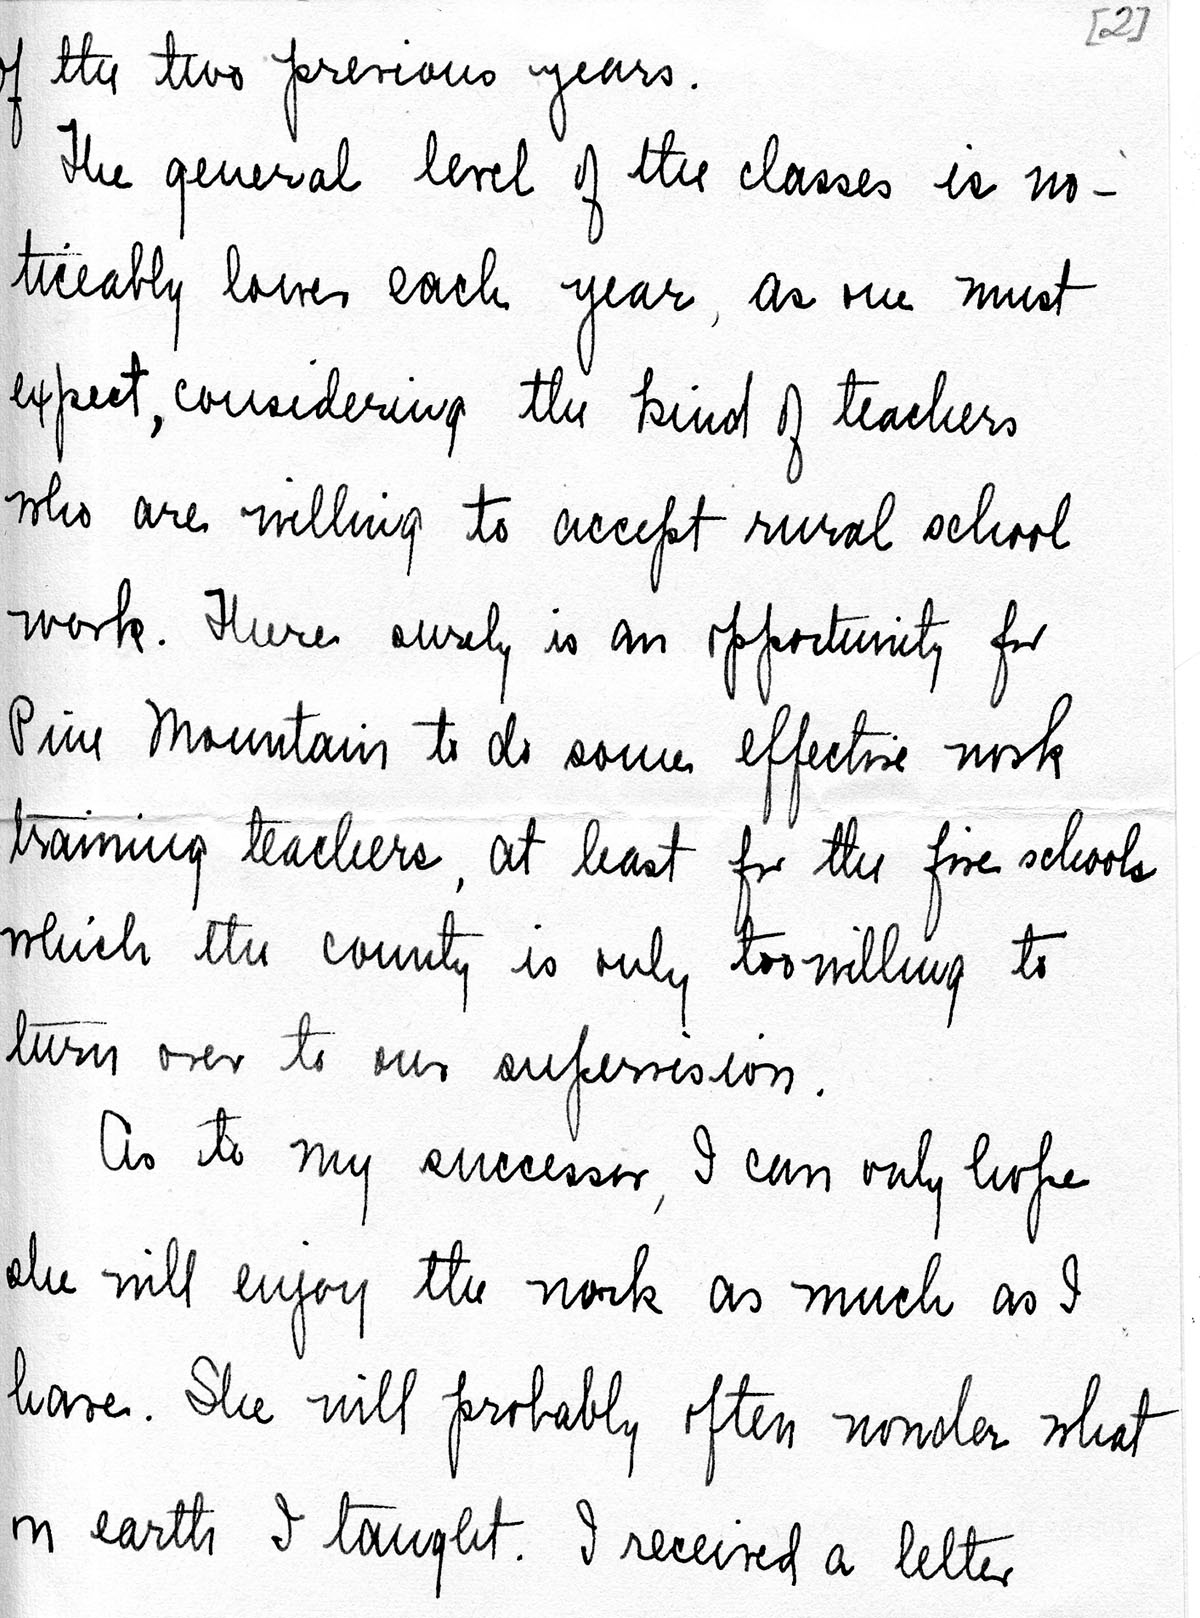 [2]
of the two previous years.
The general level of the classes is no-
ticeably lower each year, as one must
expect, considering the kind of teachers
who are willing to accept rural school
work. There surely is an opportunity for
Pine Mountain to do some effective work
training teachers, at least for the five schools
which the county is only too willing to
turn over to our supervision.
As to my successor, I can only hope
she will enjoy the work as much as I
have. She will probably often wonder what
on earth I taught. I received a letter